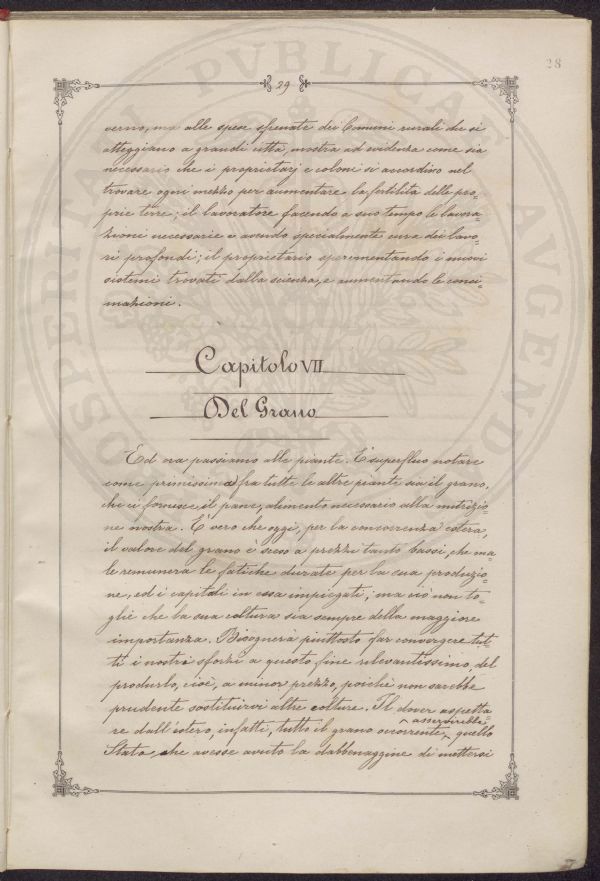 28
29
verno, ma alle spese sfrenate dei Comuni rurali che si
atteggiano a grandi città, mostra ad evidenza come sia
necessario che i proprietarj e coloni si accordino nel
trovare ogni mezzo per aumentare la fertilità delle pro=
prie terre; il lavoratore facendo a suo tempo le lavora=
zioni necessarie e avendo specialmente cura dei lavo=
ri profondi; il proprietario sperimentando i nuovi
sistemi trovati dalla scienza, e aumentando le conci=
mazioni.
Capitolo VII
Del Grano
Ed ora passiamo alle piante. È superfluo notare
come primissima fra tutte le altre piante sia il grano,
che ci fornisce il pane, alimento necessario alla nutrizio=
ne nostra. È vero che oggi, per la concorrenza estera,
il valore del grano è sceso a prezzi tanto bassi, che ma=
le remunera le fatiche durate per la sua produzio=
ne, ed i capitali in essa impiegati; ma ciò non to=
glie che la sua coltura sia sempre della maggiore
importanza. Bisognerà piuttosto far convergere tut=
ti i nostri sforzi a questo fine rilevantissimo, del
produrlo, cioè, a minor prezzo, poichè non sarebbe
prudente sostituirvi altre colture. Il dover aspetta
re dall'estero, infatti, tutto il grano occorrente, asservirebbe= quello
Stato, che avesse avuto la dabbenaggine di mettersi
PROSPERITATI PVBLICAE AVGENDAE